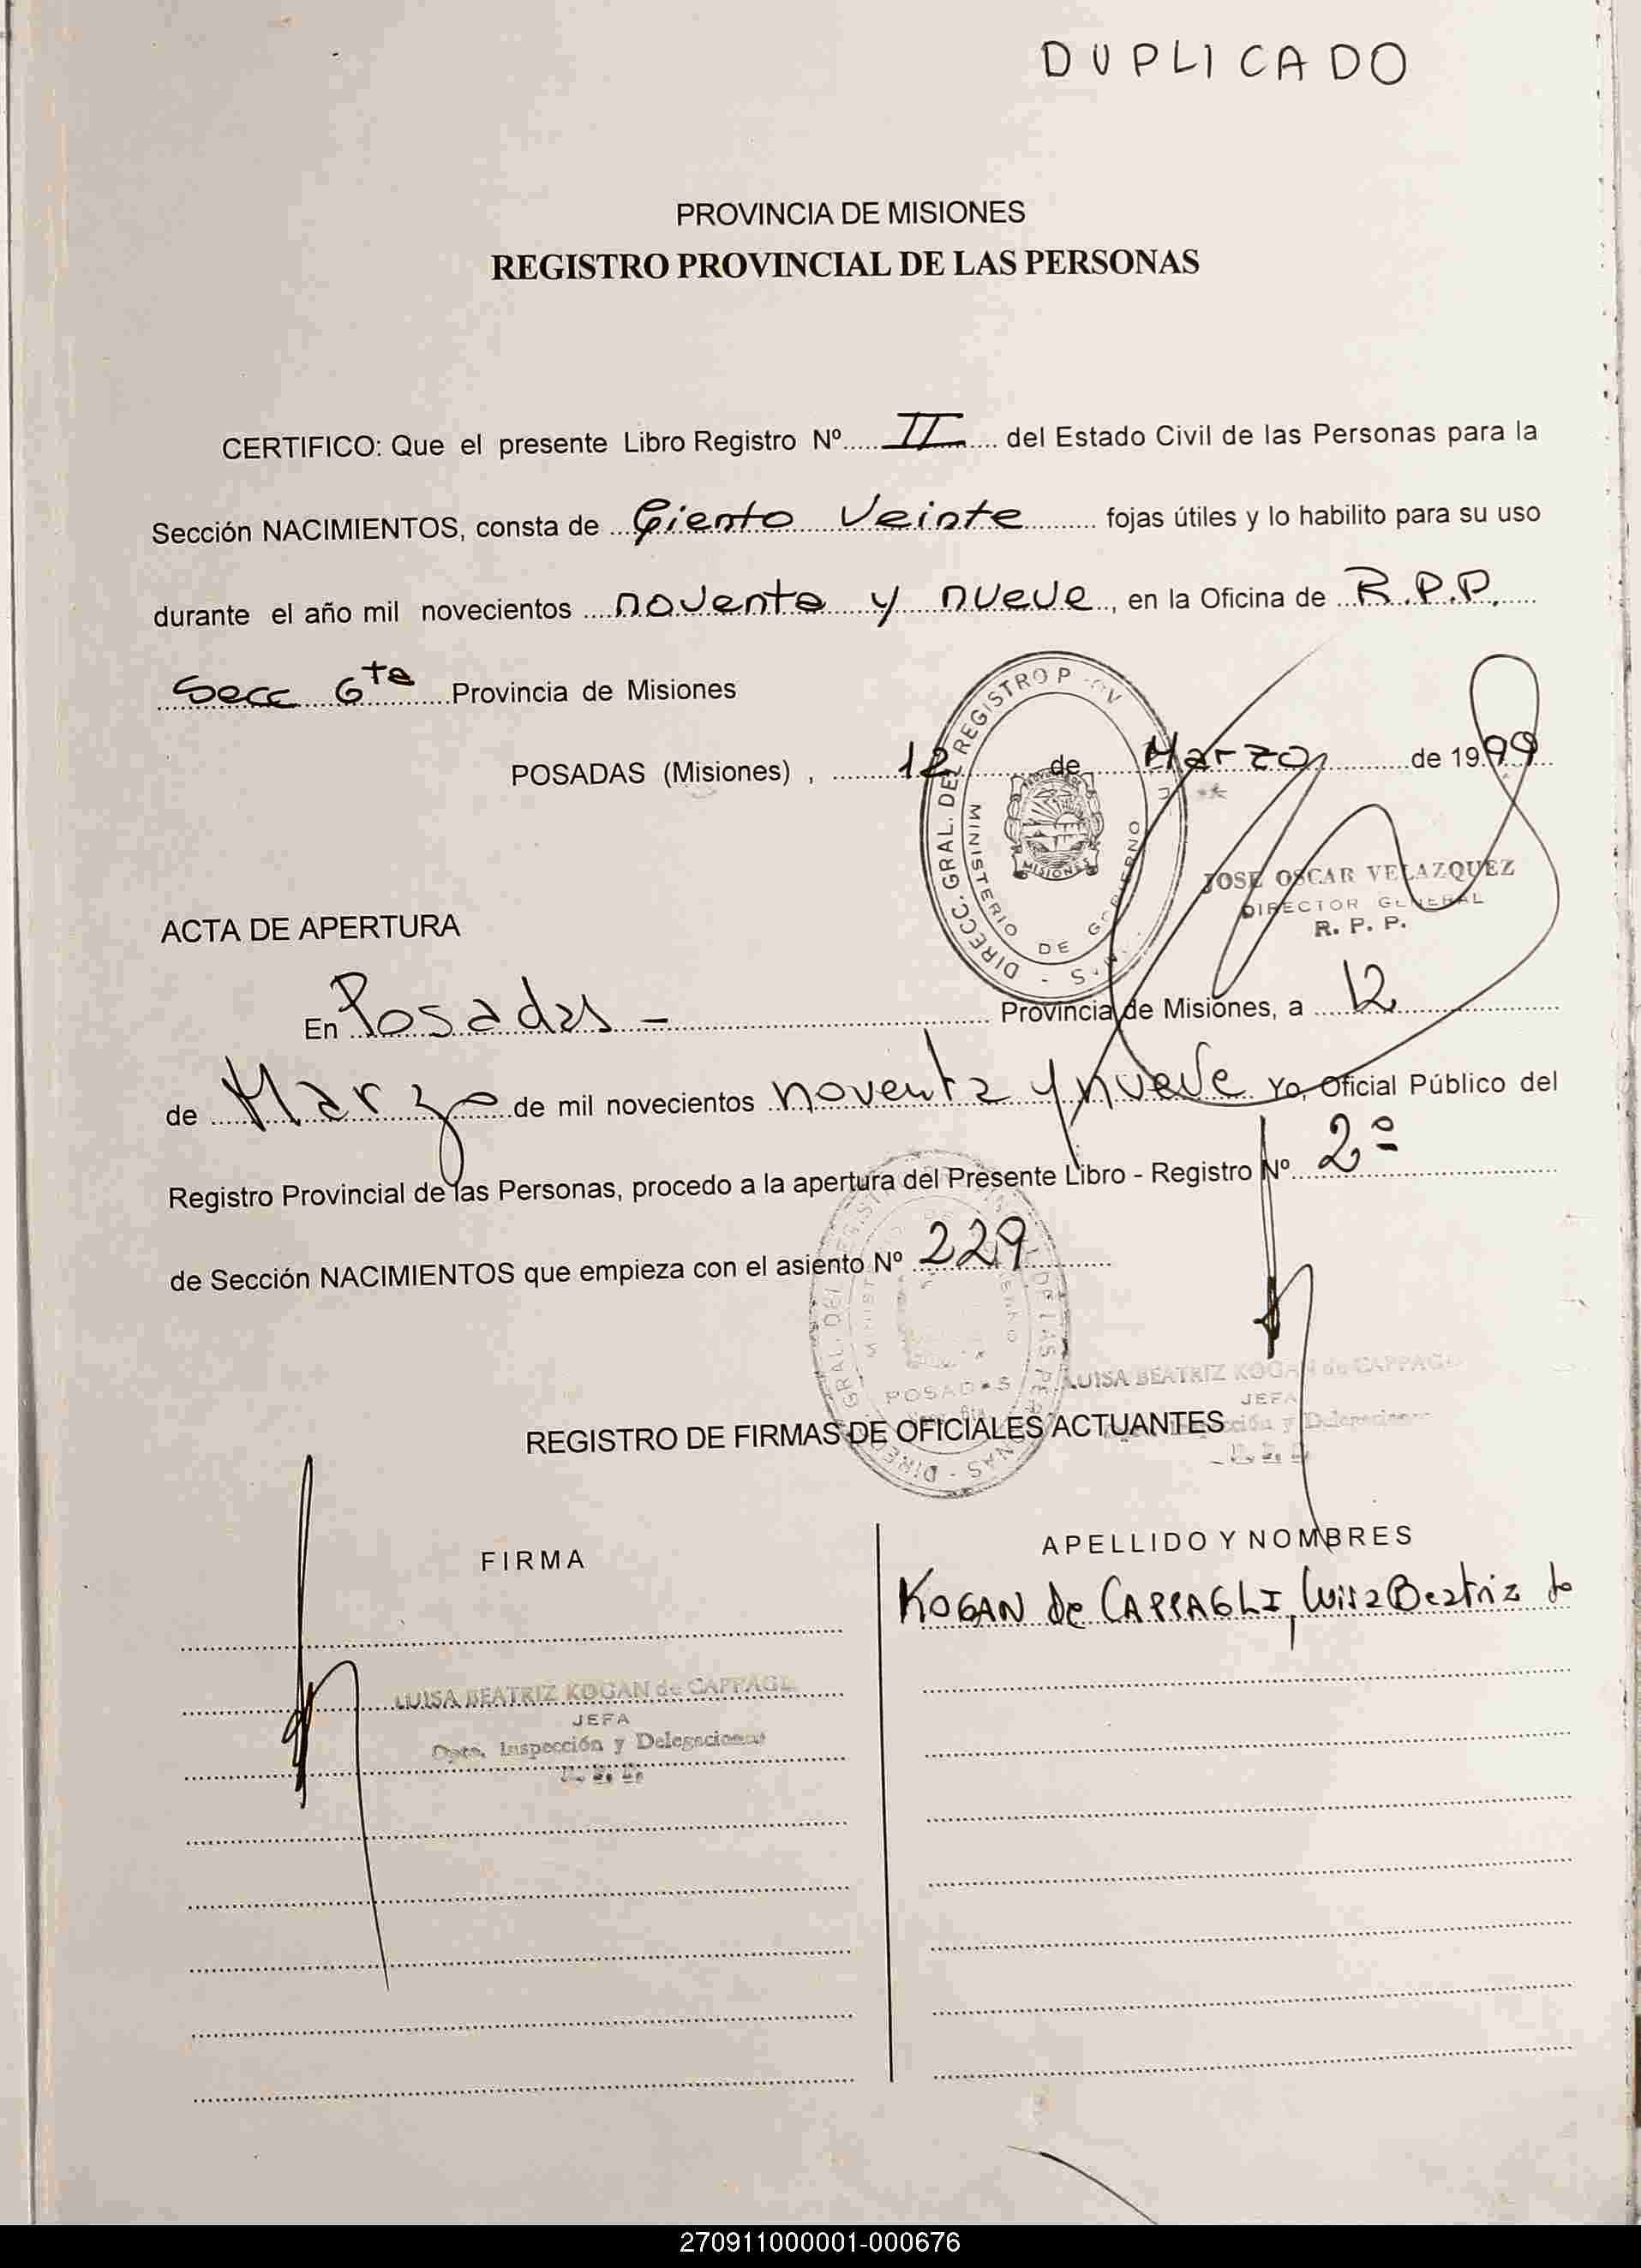 DUPLICADO
PROVINCIA DE MISIONES
REGISTRO PROVINCIAL DE LAS PERSONAS
CERTIFICO: Que el presente Libro Registro Nº..... II .... del Estado Civil de las Personas para la
Sección NACIMIENTOS, consta de ... Ciento Veinte ......... fojas útiles y lo habilito para su uso
durante el año mil novecientos .... noventa y nueve .., en la Oficina de ... R.P.P. .....
Secc 6ta ..... Provincia de Misiones
POSADAS (Misiones) , ........ 12 ........ de ..... Marzo ......... de 19.99...
DIRECC. GRAL. DEL REGISTRO
MINISTERIO DE GOBIERNO
MISIONES
JOSE OSCAR VELAZQUEZ
DIRECTOR GENERAL
R. P. P.
ACTA DE APERTURA
En Posadas - ........ Provincia de Misiones, a .... 12 ........
de ... Marzo ... de mil novecientos ... noventa y nueve Yo, Oficial Público del
Registro Provincial de las Personas, procedo a la apertura del Presente Libro - Registro Nº... 2º ........
de Sección NACIMIENTOS que empieza con el asiento Nº . 229 ........
POSADAS
LUISA BEATRIZ KOGAN de CAPPAGLI
JEFA
y Delegaciones
REGISTRO DE FIRMAS DE OFICIALES ACTUANTES
FIRMA
APELLIDO Y NOMBRES
KOGAN de CAPPAGLI, Luisa Beatriz
LUISA BEATRIZ KOGAN de CAPPAGLI
JEFA
Dpto. Inspección y Delegaciones
270911000001-000676